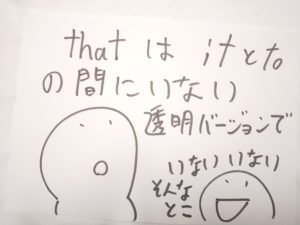 thatはitとto
の間にいない
透明バージョンで
いないいない
そんな
とこ